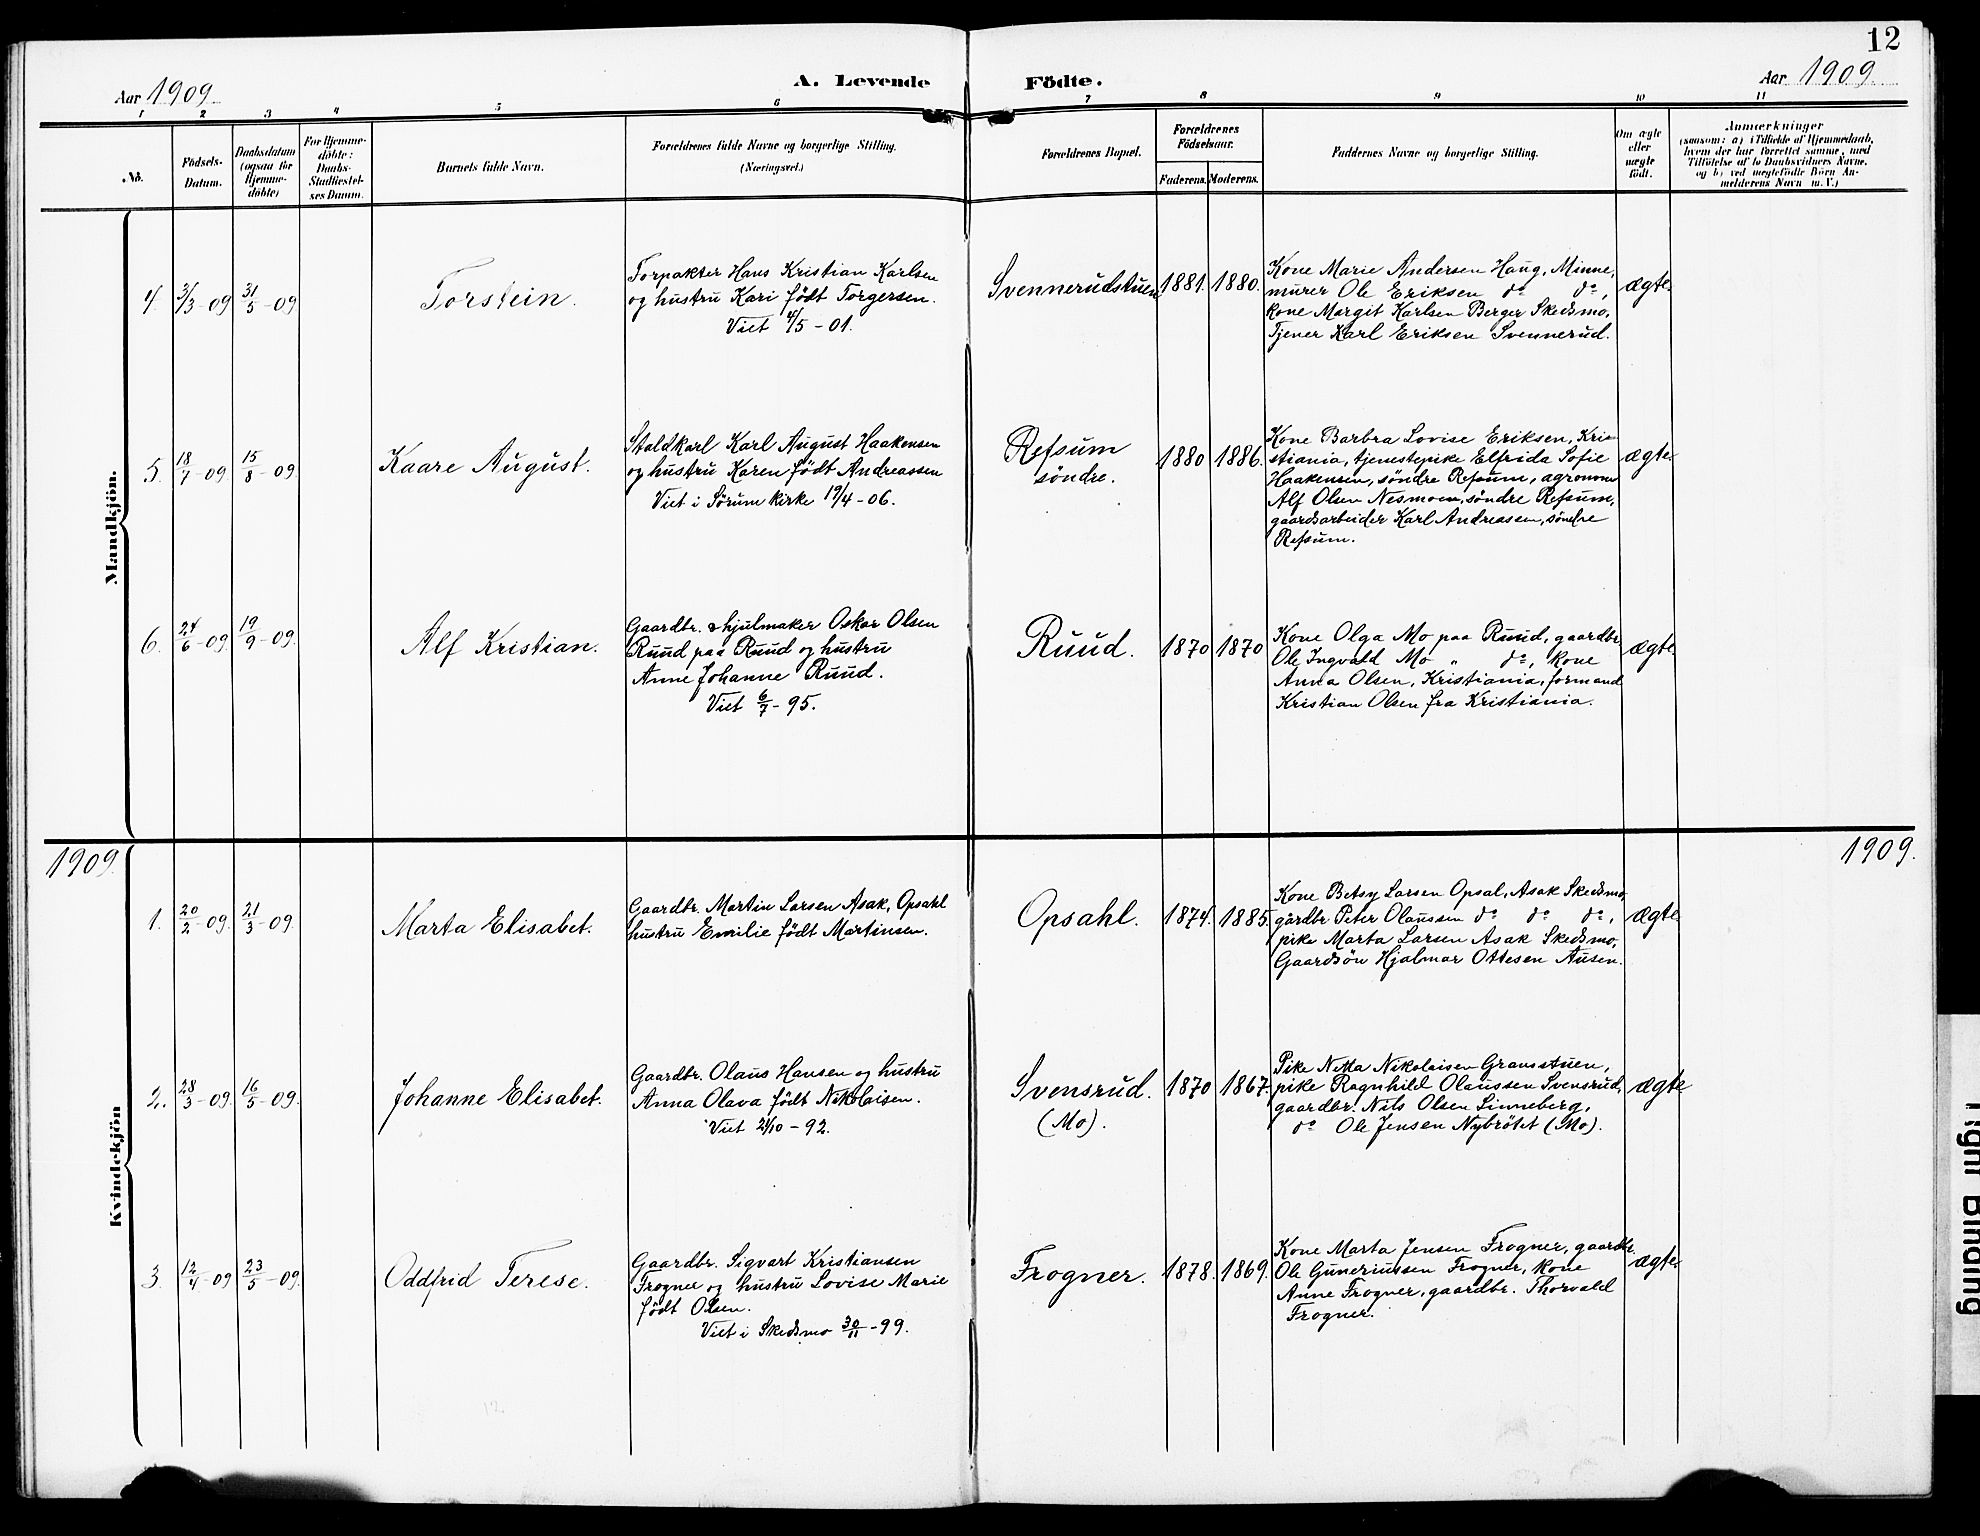 12
Aar 1909.
A. Levende Födte.
Aar 1909.
1 2 3 4 5 6 7 8 9 10 11
No.
Födsels-
Datum.
Daabsdatum
(ogsaa for
Hjemme-
döbte)
For Hjemme-
döbte:
Daabs-
Stadfæstel-
ses Datum.
Barnets fulde Navn.
Forældrenes fulde Navne og borgerlige Stilling.
(Næringsvei.)
Forældrenes Bopæl.
Forældrenes
Födselsaar.
Faderens. Moderens.
Faddernes Navne og borgerlige Stilling.
Om ægte
eller
uægte
födt.
Anmærkninger
(saasom: a) i Tilfælde af Hjemmedaab,
hvem der har forrettet samme, med
Tilföielse af to Daabsvidners Navne,
og b) ved uægtefödte Börn An-
melderens Navn m. V.)
Mandkjön.
4. 3/3-09 31/5-09 Torstein.
Forpakter Hans Kristian Karlsen
og hustru Kari født Torgersen.
Viet 4/5-01.
Svennerudstuen 1881. 1880.
Kone Marie Andersen Haug, Minne,
murer Ole Eriksen do do,
kone Margit Karlsen Berger Skedsmo,
Tjener Karl Eriksen Svennerud.
ægte.
5. 18/7-09. 15/8-09. Kaare August.
Staldkarl Karl August Haakensen
og hustru Karen født Andreassen
Viet i Sørum kirke 19/4-06.
Refsum
søndre.
1880 1886.
Kone Barbra Lovise Eriksen, Kri-
stiania, tjenestepike Elfrida Sofie
Haakensen, søndre Refsum, agronom
Alf Olsen Nesmoen, søndre Refsum,
gaardsarbeider Karl Andreassen, søndre
Refsum.
ægte.
6. 24/6-09. 19/9-09. Alf Kristian.
Gaardbr. & hjulmaker Oskar Olsen
Ruud paa Ruud og hustru
Anne Johanne Ruud.
Viet 6/7-95.
Ruud. 1870 1870
Kone Olga Mo paa Ruud, gaardbr.
Ole Ingvald Mo " do, kone
Anna Olsen, Kristiania, formand
Kristian Olsen fra Kristiania.
ægte.
1909. 1909.
Kvindekjön
1. 20/2-09. 21/3-09. Marta Elisabet.
Gaardbr. Martin Larsen Asak, Opsahl
hustru Emilie født Martinsen.
Opsahl. 1874. 1885.
Kone Betsy Larsen Opsal, Asak Skedsmo,
gårdbr Peter Olaussen do do do,
pike Marta Larsen Asak Skedsmo,
Gaardsön Hjalmar Ottesen Ausen.
ægte
2. 28/3-09. 16/5-09. Johanne Elisabet.
Gaardbr. Olaus Hansen og hustru
Anna Olava født Nikolaisen.
Viet 21/10-92.
Svensrud.
(Mo).
1870 1867.
Pike Netta Nikolaisen Gramstuen,
pike Ragnhild Olaussen Svensrud,
gaardbr. Nils Olsen Linneberg,
do Ole Jensen Nybrötet (Mo).
ægte
3. 12/4-09 23/5-09. Oddfrid Terese.
Gaardbr. Sigvart Kristiansen
Frogner og hustru Lovise Marie
født Olsen.
Viet i Skedsmo 30/11-99.
Frogner. 1878. 1869.
Kone Marta Jensen Frogner, gaardbr.
Ole Guneriussen Frogner, kone
Anne Frogner, gaardbr. Thorvald
Frogner.
ægte
Tight Binding